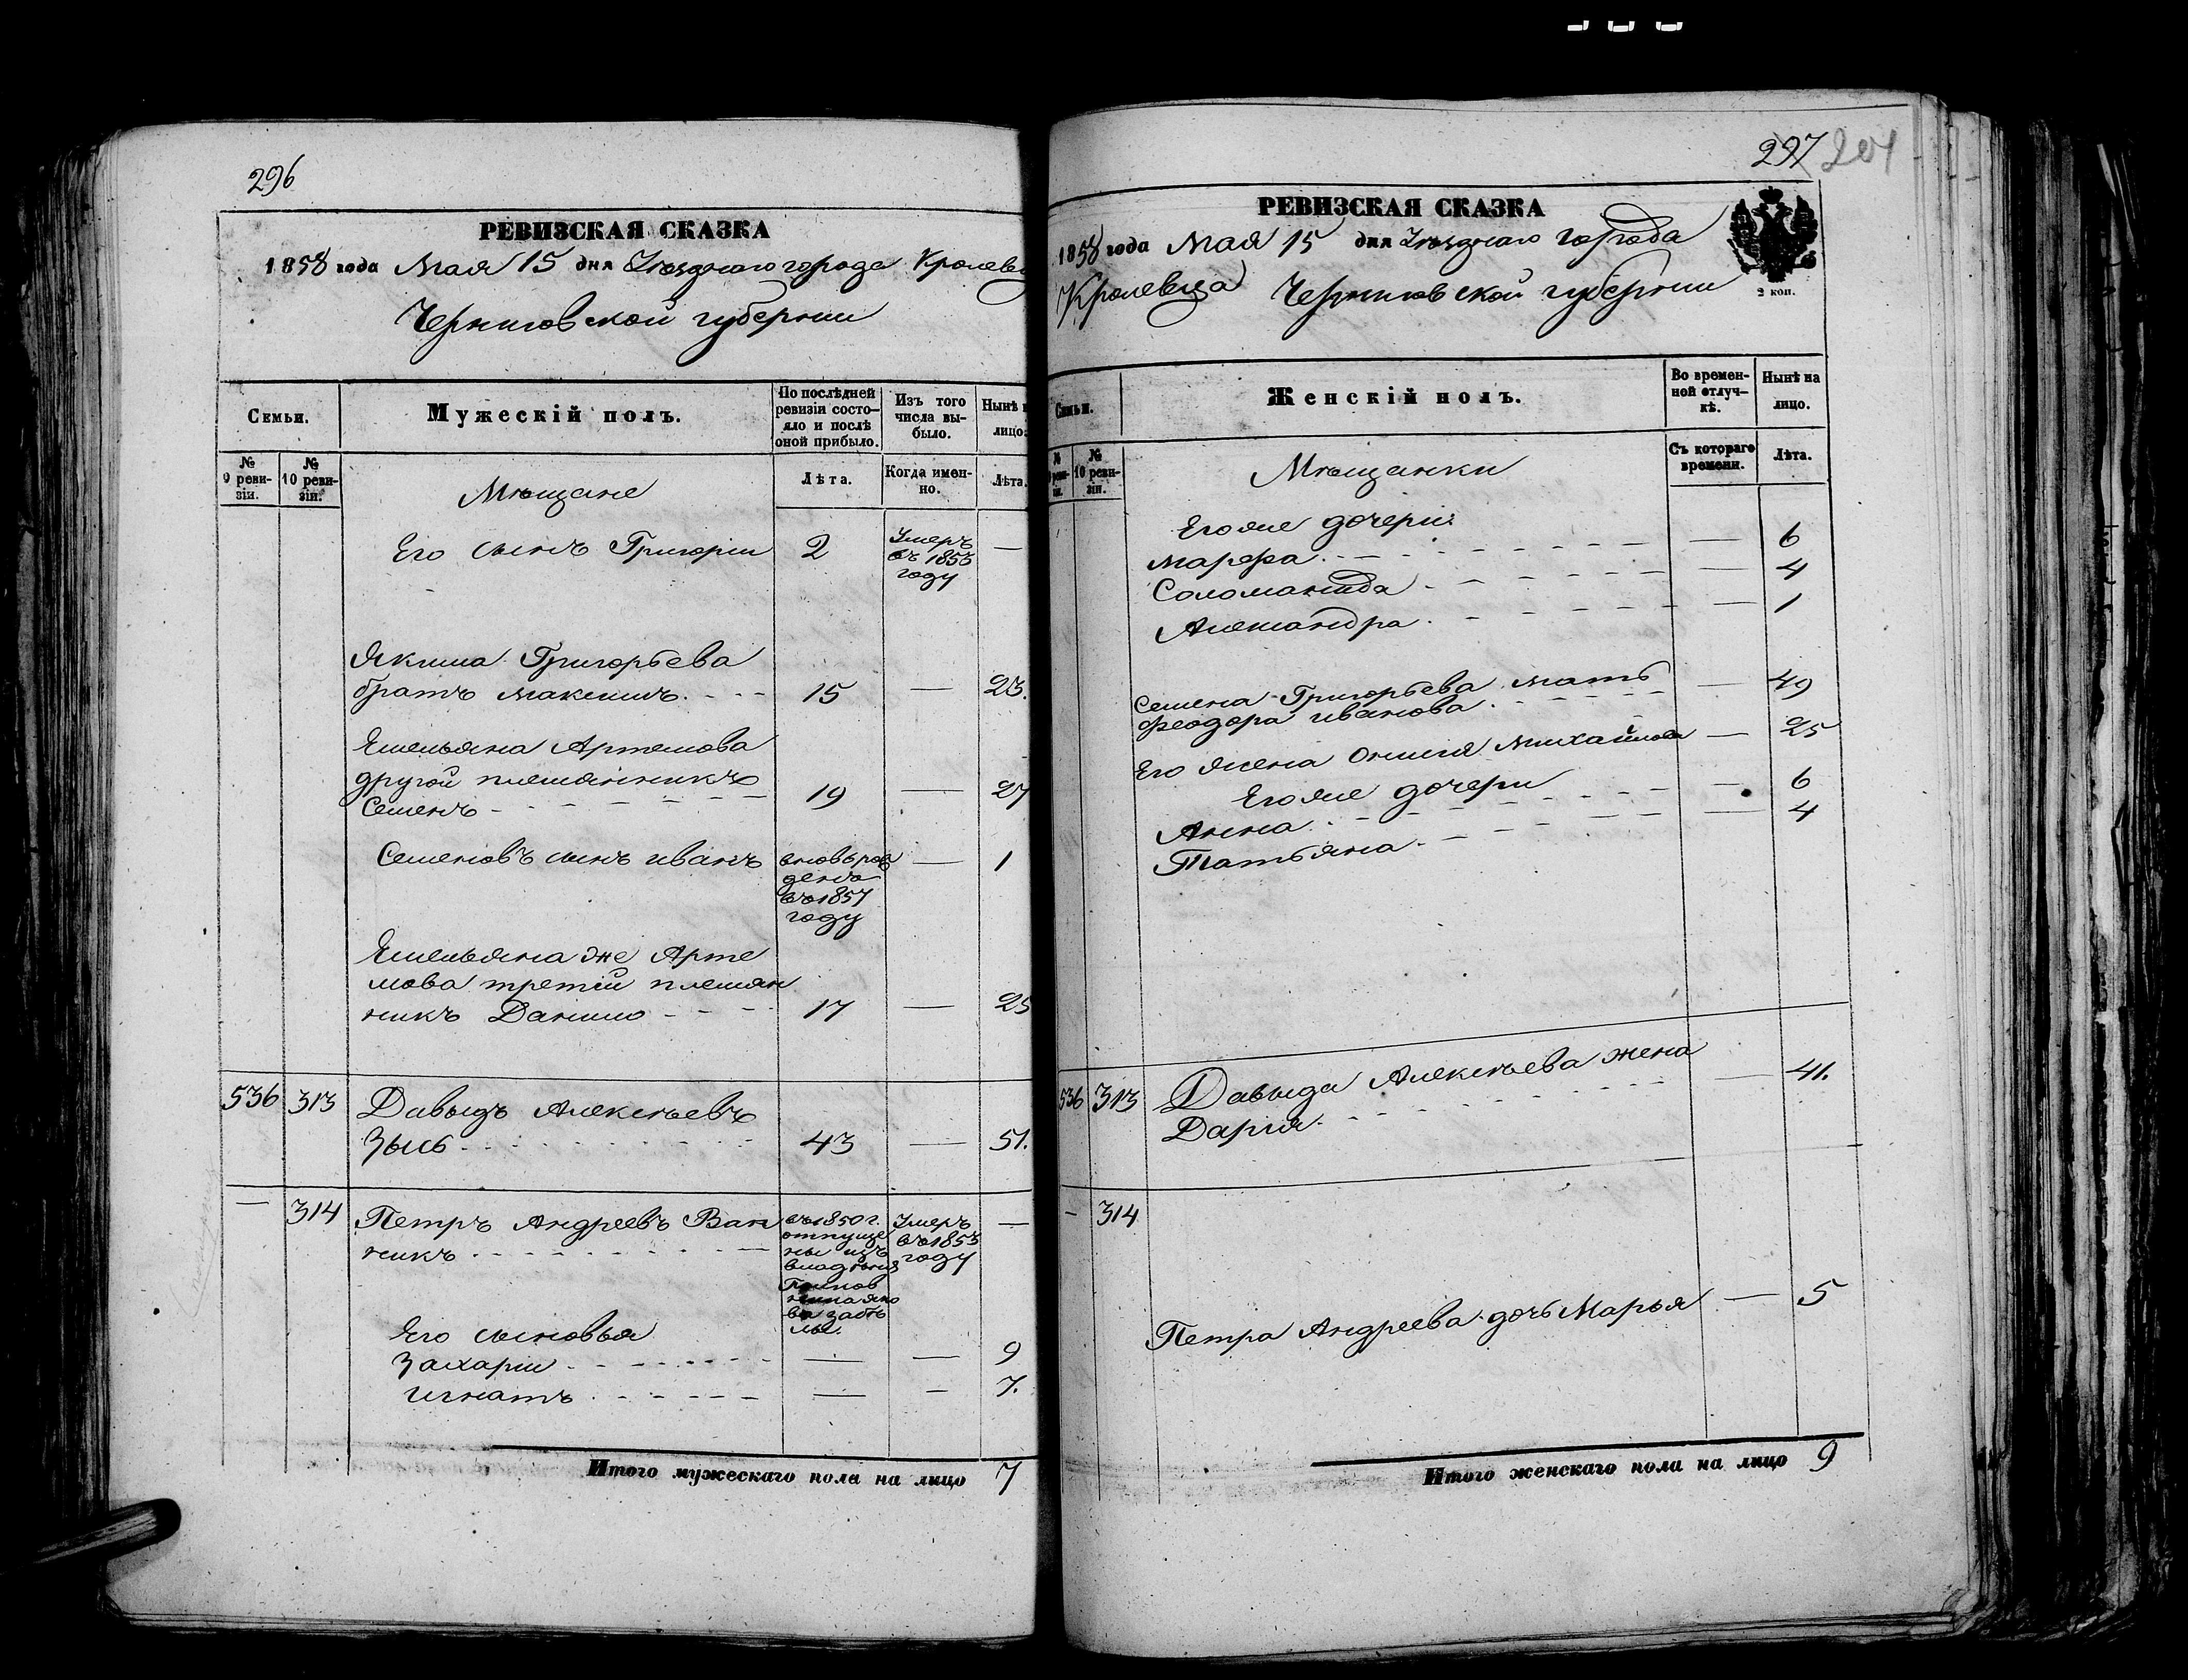 296
РЕВИЗСКАЯ СКАЗКА
1858 года Мая 15 дня Уѣзднаго города Кролевц
Черниговской губернiи
Семьи.
Мужескiй полъ.
По послѣдней ревизiи состо-
яло и послѣ оной прибыло.
Изъ того числа вы-
было.
Нынѣ н
лицо:
№ 9 реви-
зiи.
№ 10 реви-
зiи.
Лѣта.
Когда имен-
но.
Лѣта.
Мѣщане
Его сынъ Григорiй 2 Умеръ —
въ 1853
году
Якима Григорьева
братъ Максимъ. 15 — 23.
Емельяна Артемова
другой племянникъ
Семенъ 19 — 27
Семеновъ сынъ Иванъ вновь рож — 1
денъ
въ 1857
году
Емельяна же Арте
мова третiй племян
никъ Данило 17 — 25
536 313 Давыдъ Алексѣевъ
Зысь 43 — 51.
— 314 Петръ Андреевъ Ван въ 1850 г. Умеръ —
никъ отпуще въ 1853
ны изъ году
владѣнiя
Его сыновья
Захарiй — — 9
Игнатъ — — 7.
Итого мужескаго пола на лицо 7
297 204
РЕВИЗСКАЯ СКАЗКА
1858 года Мая 15 дня Уѣзднаго города
Кролевца Черниговской губернiи
2 коп.
Семьи.
Женскiй полъ.
Во времен-
ной отлуч-
кѣ.
Нынѣ на
лицо.
№ 10 реви-
зiи.
Съ котораго
времени.
Лѣта.
Мѣщанки
Его же дочери:
Марфа — 6
Соломанида — 4
Александра — 1
Семена Григорьева мать — 49
Феодора Иванова
Его жена Ониския Михайлова — 25
Его же дочери
Анна — 6
Татьяна — 4
536 313 Давыда Алексѣева жена — 41.
Дарiя
— 314
Петра Андреева дочь Марья — 5
Итого женскаго пола на лицо 9